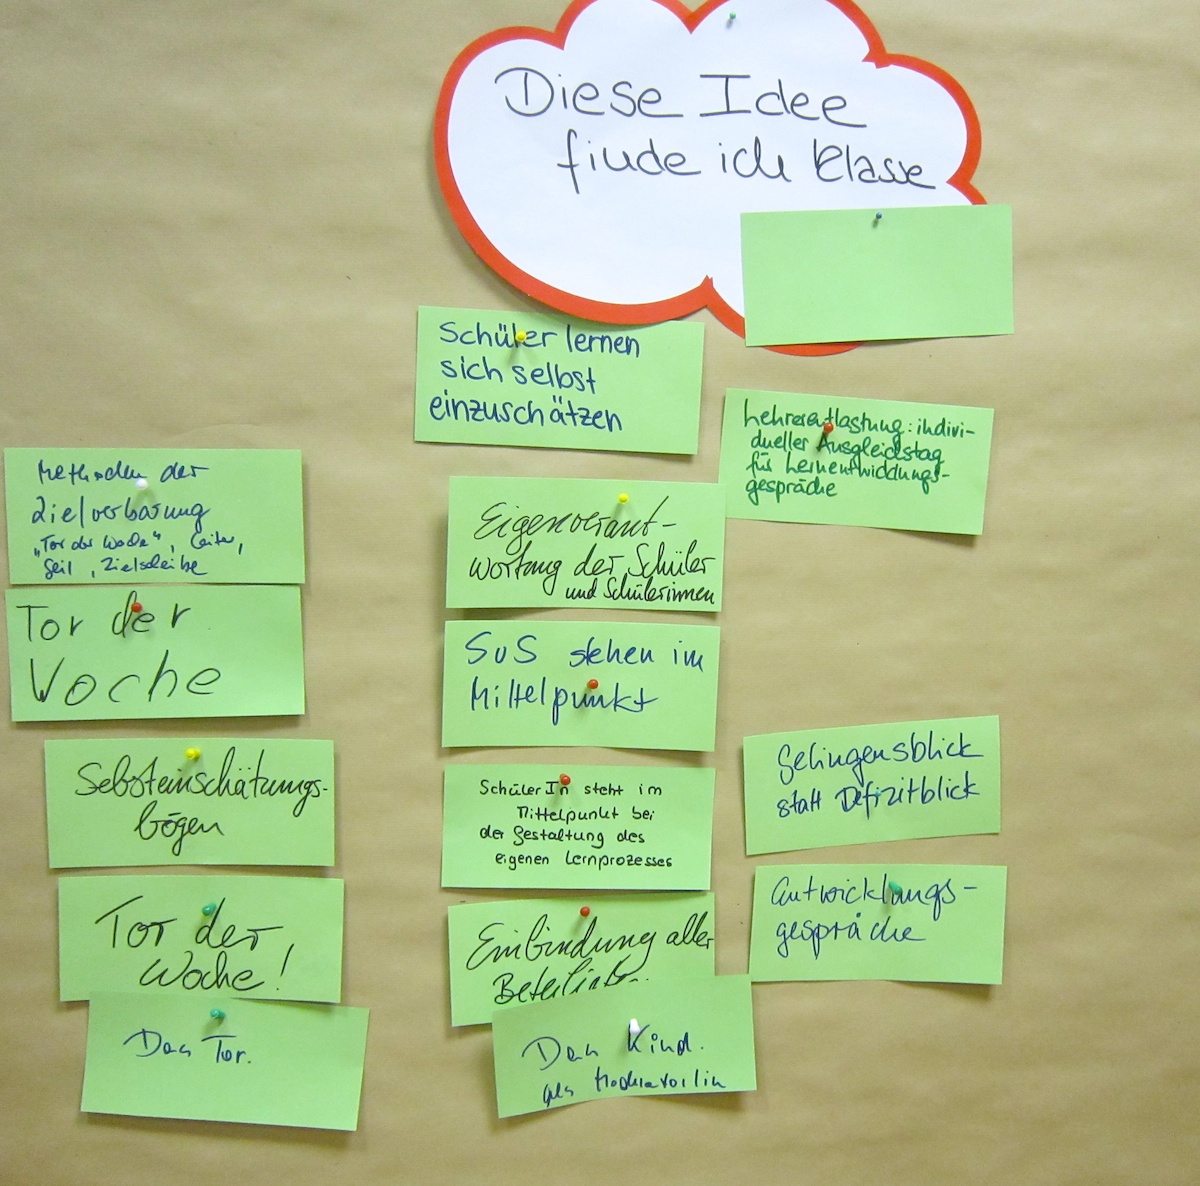 Diese Idee
finde ich klasse
Schüler lernen
sich selbst
einzuschätzen
Lehrerentlastung: indivi-
dueller Ausgleichstag
für Lernentwicklungs-
gespräche
Methoden der
Zielverbarung
„Tor der Woche", Leiter,
Seil, Zielscheibe
Tor der
Woche
Selbsteinschätzungs-
bögen
Tor der
Woche!
Das Tor.
Eigenverant-
wortung der Schüler
und Schülerinnen
SuS stehen im
Mittelpunkt
SchülerIn steht im
Mittelpunkt bei
der Gestaltung des
eigenen Lernprozesses
Einbindung aller
Das Kind.
als Moderatorin
Gelingensblick
statt Defizitblick
Entwicklungs-
gespräche